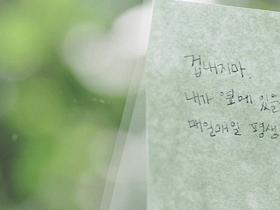 겁내지마.
내가 옆에 있을
매일매일 평생